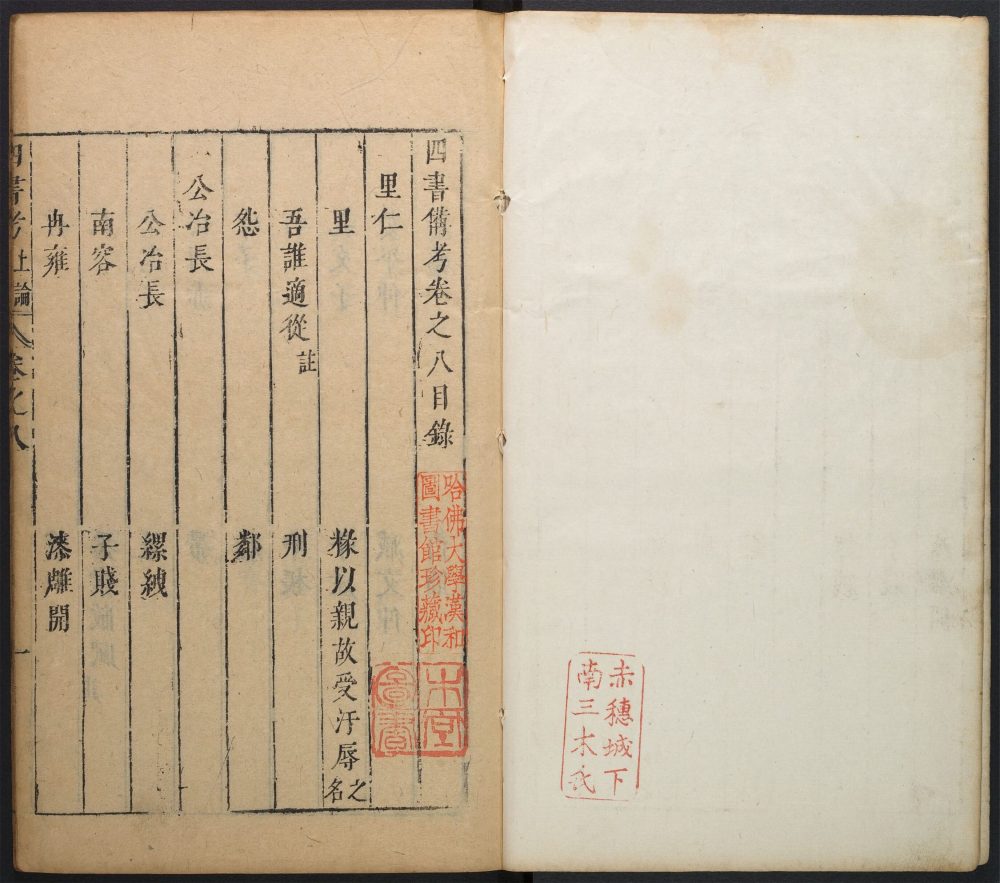 赤穗城下
南三木氏
四書備考卷之八目錄
哈佛大學漢和
圖書館珍藏印
里仁
里 椽以親故受汙辱之名
吾誰適從註 刑
怨 鄰
公冶長
公冶長 縲絏
南容 子賤
冉雍 漆雕開
四書考 上論 卷之八 一